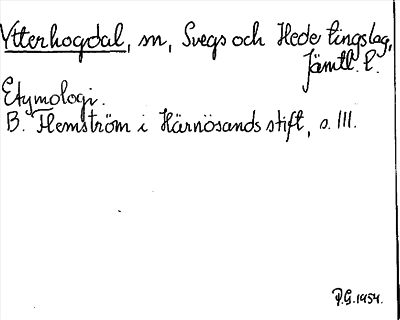 Ytterhogdal, sn, Svegs och Hede tingslag,
Jämtl. l.
Etymologi.
B. Flemström i Härnösands stift, s. 111.
P.G. 1954.